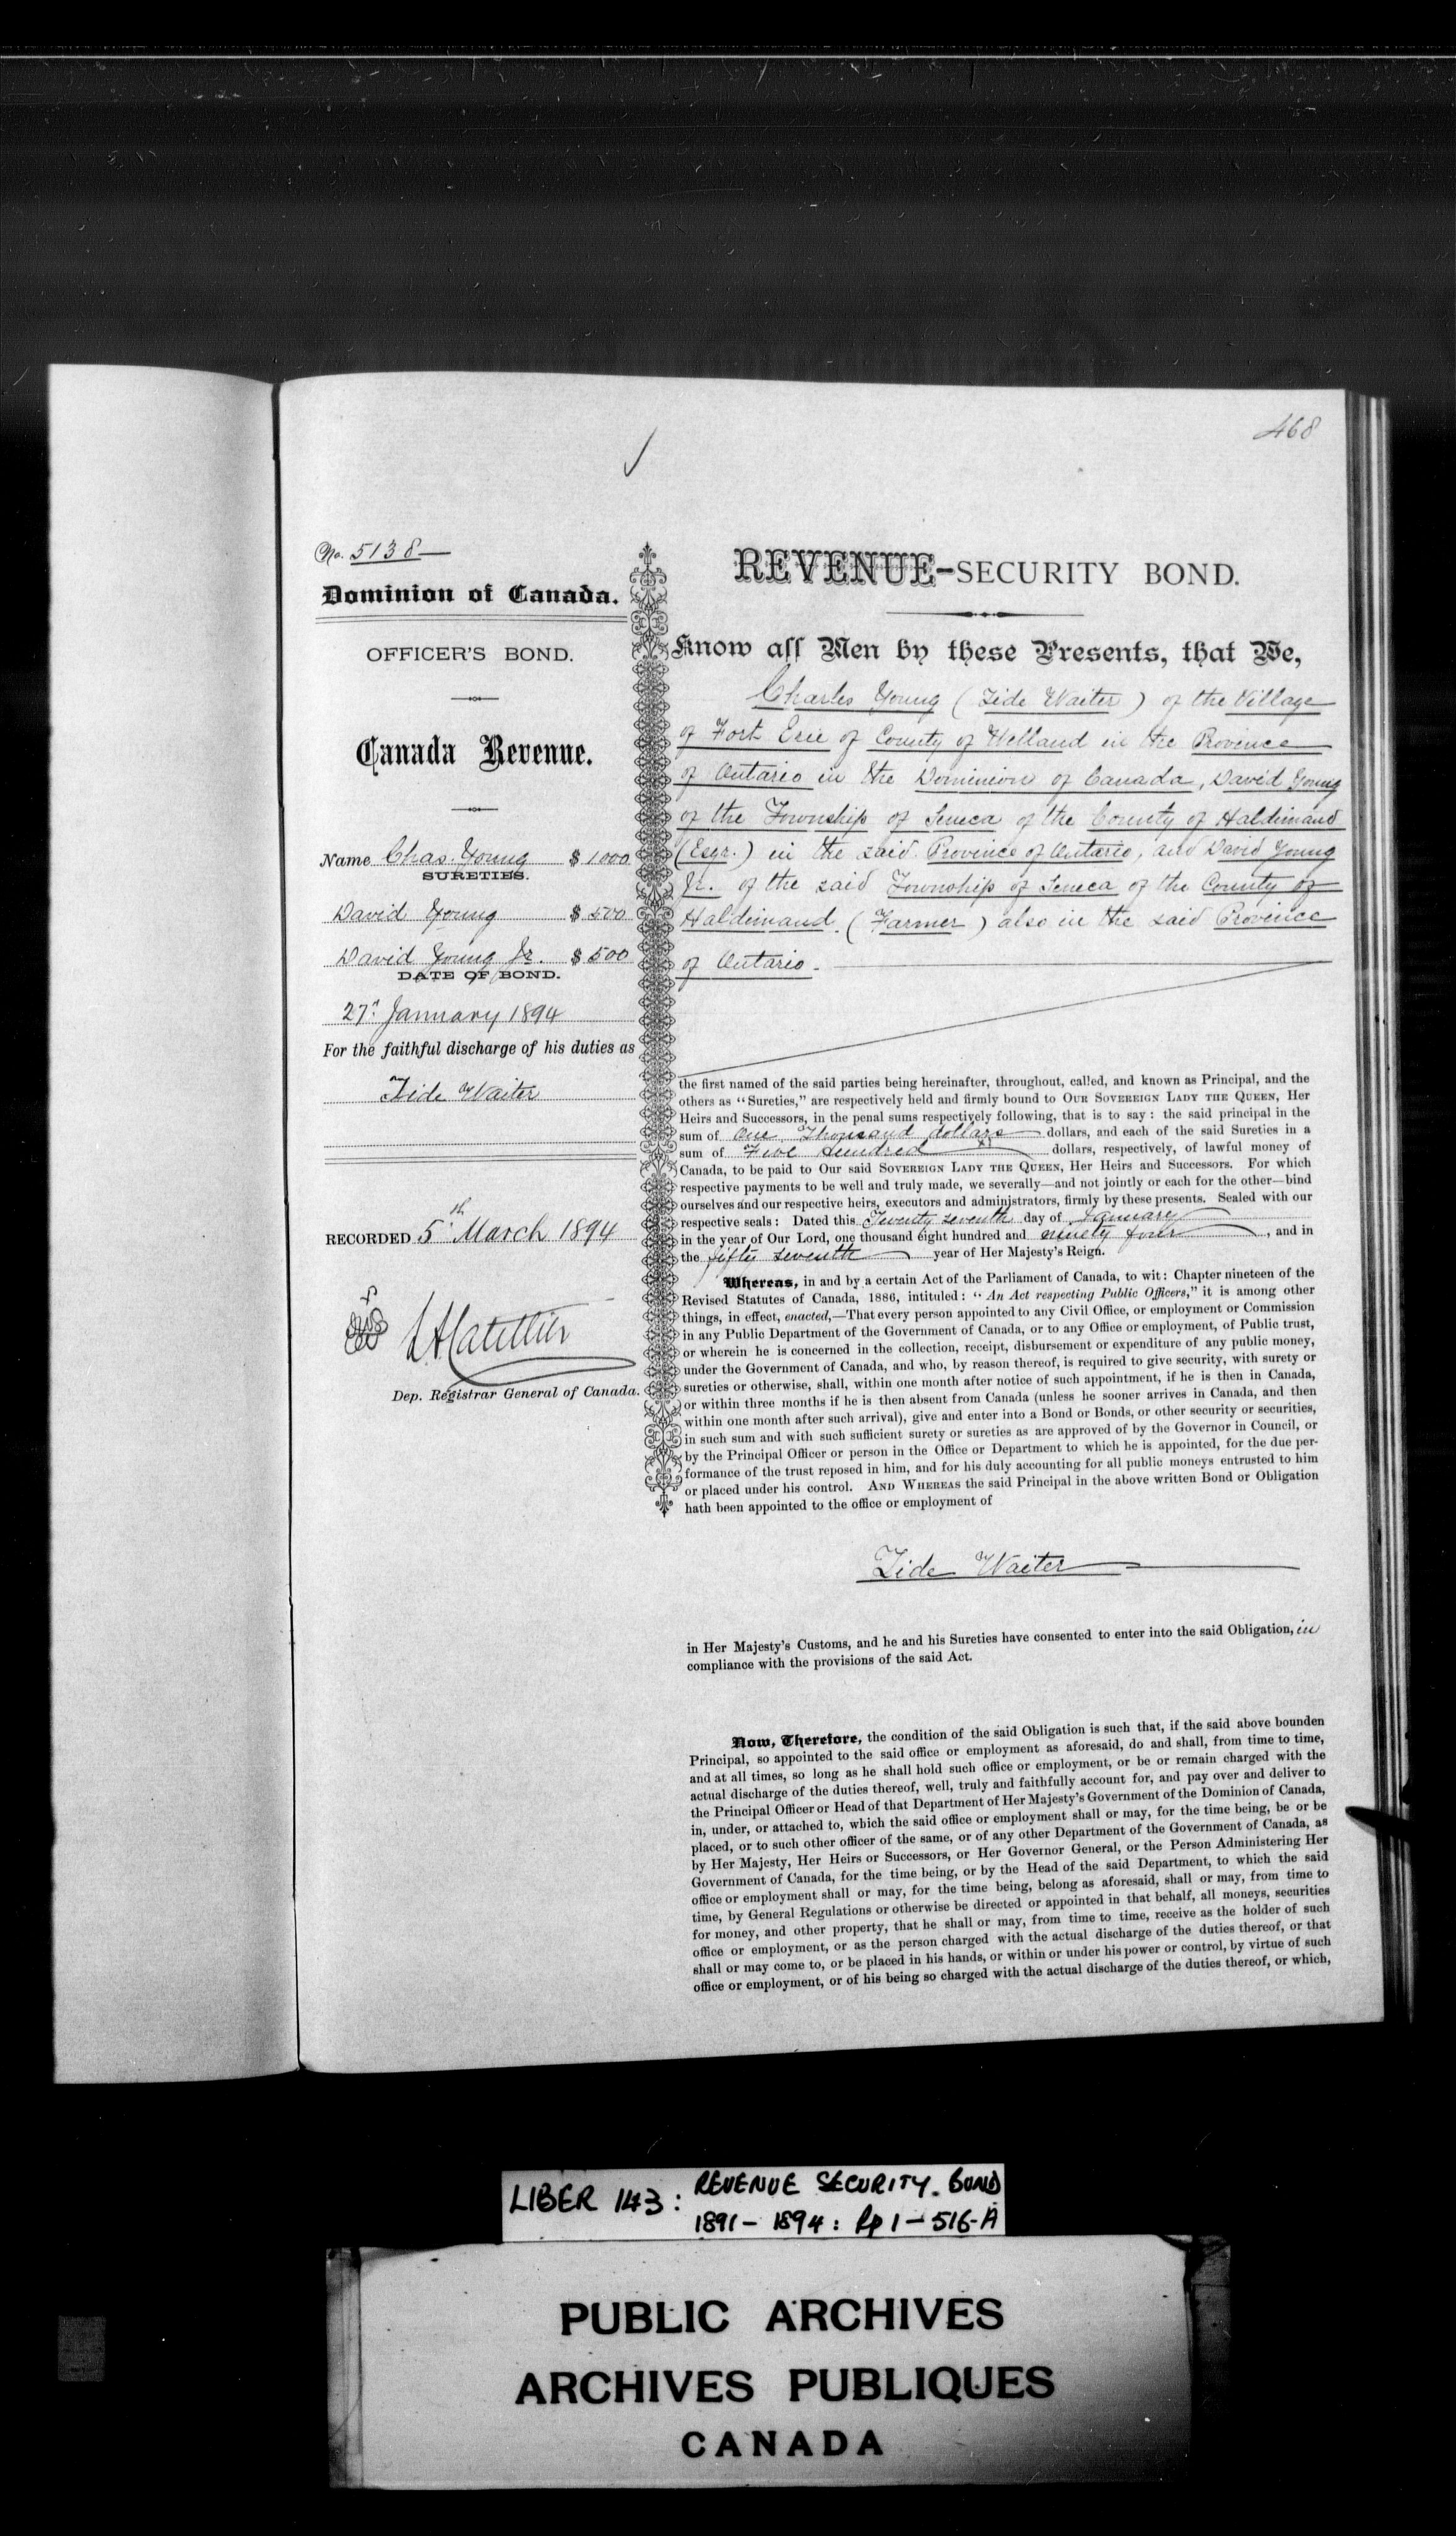 468
No. 5138
Dominion of Canada.
OFFICER'S BOND.
Canada Revenue.
Name Chas. Young $1000
SURETIES.
David Young $500
David Young Jr. $500
DATE OF BOND.
27th January 1894
For the faithful discharge of his duties as
Tide Waiter
RECORDED 5th March 1894
Dep. Registrar General of Canada.
REVENUE-SECURITY BOND.
Know all Men by these Presents, that We,
Charles Young (Tide Waiter) of the Village
of Fort Erie of County of Welland in the Province
of Ontario in the Dominion of Canada, David Young
of the Township of Seneca of the County of Haldimand
(Esqr.) in the said Province of Ontario, and David Young
Jr. of the said Township of Seneca of the County of
Haldimand. (Farmer) also in the said Province
of Ontario.
the first named of the said parties being hereinafter, throughout, called, and known as Principal, and the
others as "Sureties," are respectively held and firmly bound to OUR SOVEREIGN LADY THE QUEEN, Her
Heirs and Successors, in the penal sums respectively following, that is to say: the said principal in the
sum of One Thousand dollars dollars, and each of the said Sureties in a
sum of Five hundred dollars, respectively, of lawful money of
Canada, to be paid to Our said SOVEREIGN LADY THE QUEEN, Her Heirs and Successors. For which
respective payments to be well and truly made, we severally—and not jointly or each for the other—bind
ourselves and our respective heirs, executors and administrators, firmly by these presents. Sealed with our
respective seals: Dated this Twenty seventh day of January
in the year of Our Lord, one thousand eight hundred and ninety four, and in
the fifty seventh year of Her Majesty's Reign.
Whereas, in and by a certain Act of the Parliament of Canada, to wit: Chapter nineteen of the
Revised Statutes of Canada, 1886, intituled: "An Act respecting Public Officers," it is among other
things, in effect, enacted,—That every person appointed to any Civil Office, or employment or Commission
in any Public Department of the Government of Canada, or to any Office or employment, of Public trust,
or wherein he is concerned in the collection, receipt, disbursement or expenditure of any public money,
under the Government of Canada, and who, by reason thereof, is required to give security, with surety or
sureties or otherwise, shall, within one month after notice of such appointment, if he is then in Canada,
or within three months if he is then absent from Canada (unless he sooner arrives in Canada, and then
within one month after such arrival), give and enter into a Bond or Bonds, or other security or securities,
in such sum and with such sufficient surety or sureties as are approved of by the Governor in Council, or
by the Principal Officer or person in the Office or Department to which he is appointed, for the due per-
formance of the trust reposed in him, and for his duly accounting for all public moneys entrusted to him
or placed under his control. AND WHEREAS the said Principal in the above written Bond or Obligation
hath been appointed to the office or employment of
Tide Waiter
in Her Majesty's Customs, and he and his Sureties have consented to enter into the said Obligation, in
compliance with the provisions of the said Act.
Now, Therefore, the condition of the said Obligation is such that, if the said above bounden
Principal, so appointed to the said office or employment as aforesaid, do and shall, from time to time,
and at all times, so long as he shall hold such office or employment, or be or remain charged with the
actual discharge of the duties thereof, well, truly and faithfully account for, and pay over and deliver to
the Principal Officer or Head of that Department of Her Majesty's Government of the Dominion of Canada,
in, under, or attached to, which the said office or employment shall or may, for the time being, be or be
placed, or to such other officer of the same, or of any other Department of the Government of Canada, as
by Her Majesty, Her Heirs or Successors, or Her Governor General, or the Person Administering Her
Government of Canada, for the time being, or by the Head of the said Department, to which the said
office or employment shall or may, for the time being, belong as aforesaid, shall or may, from time to
time, by General Regulations or otherwise be directed or appointed in that behalf, all moneys, securities
for money, and other property, that he shall or may, from time to time, receive as the holder of such
office or employment, or as the person charged with the actual discharge of the duties thereof, or that
shall or may come to, or be placed in his hands, or within or under his power or control, by virtue of such
office or employment, or of his being so charged with the actual discharge of the duties thereof, or which,
LIBER 143: REVENUE SECURITY. BOND
1891-1894: Pp 1-516-A
PUBLIC ARCHIVES
ARCHIVES PUBLIQUES
CANADA